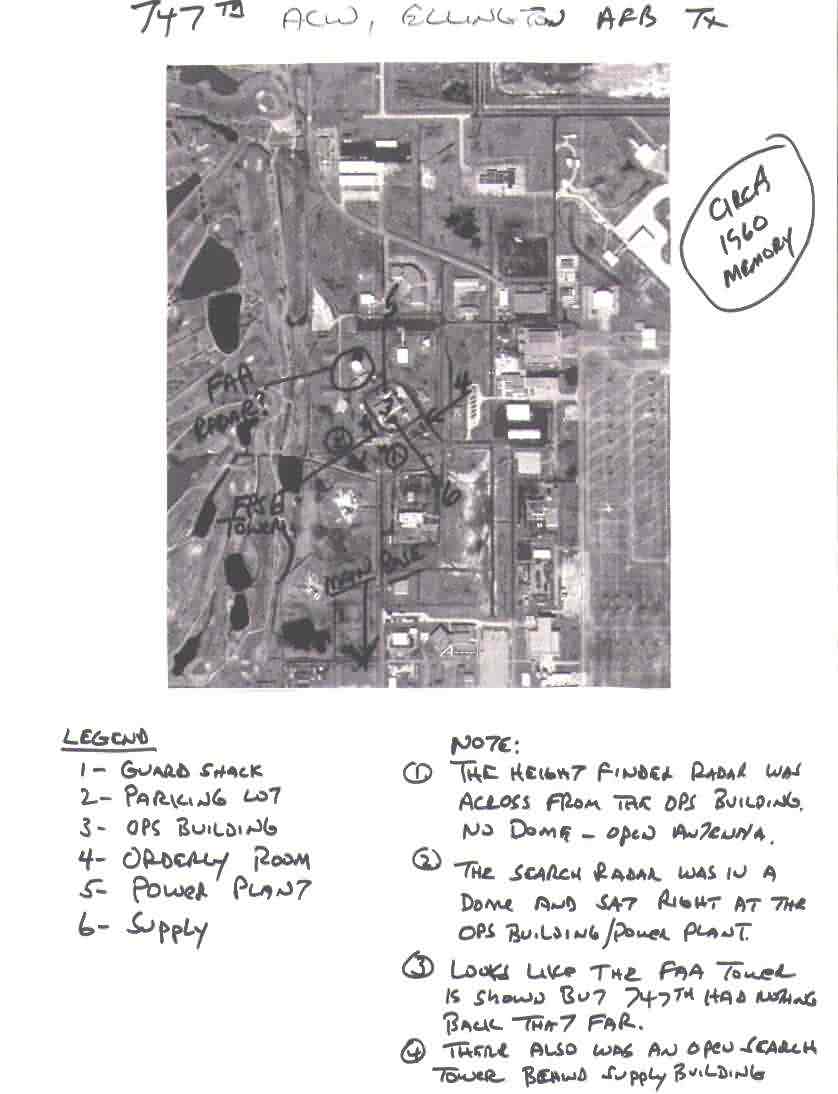 747TH ACW, ELLINGTON AFB TX
CIRCA
1960
MEMORY
5
FAA
RADAR?
3
4
4
1
6
FPS6
TOWER
MAIN BASE
LEGEND
1- GUARD SHACK
2- PARKING LOT
3- OPS BUILDING
4- ORDERLY ROOM
5- POWER PLANT
6- SUPPLY
NOTE:
① THE HEIGHT FINDER RADAR WAS
ACROSS FROM THE OPS BUILDING.
NO DOME - OPEN ANTENNA.
② THE SEARCH RADAR WAS IN A
DOME AND SAT RIGHT AT THE
OPS BUILDING/POWER PLANT.
③ LOOKS LIKE THE FAA TOWER
IS SHOWN BUT 747TH HAD NOTHING
BACK THAT FAR.
④ THERE ALSO WAS AN OPEN SEARCH
TOWER BEHIND SUPPLY BUILDING